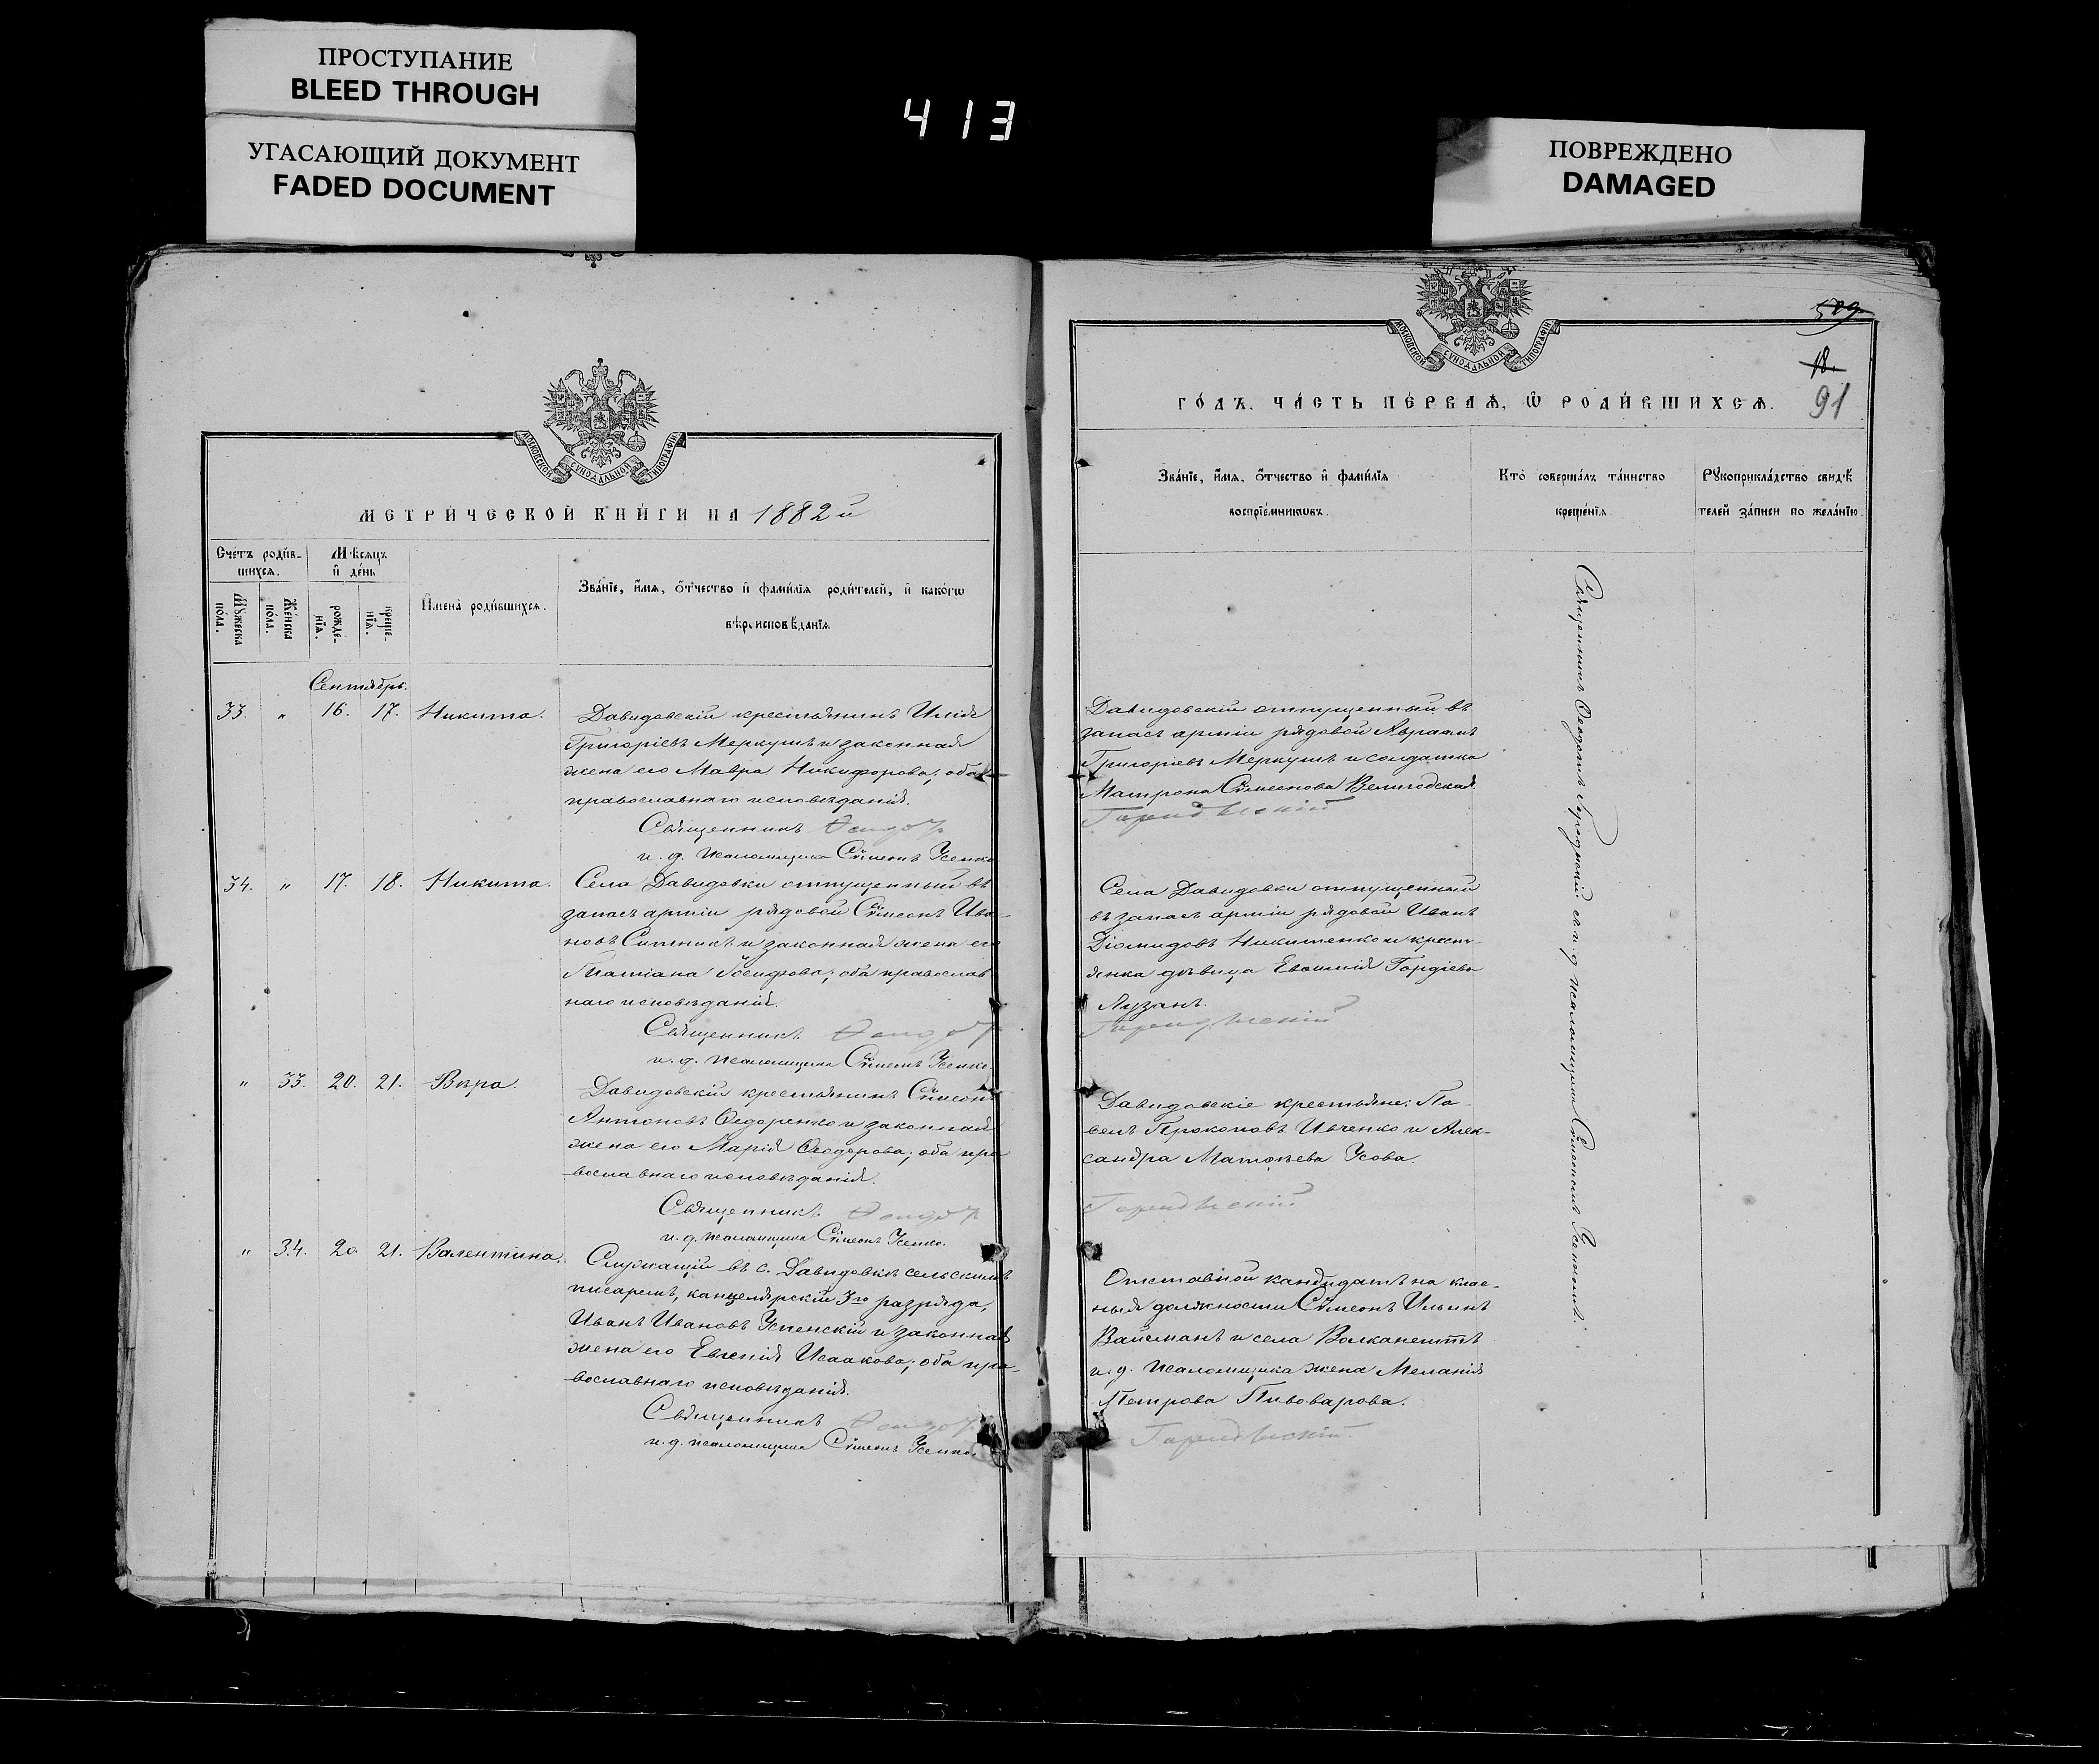 ПРОСТУПАНИЕ
BLEED THROUGH
УГАСАЮЩИЙ ДОКУМЕНТ
FADED DOCUMENT
413
ПОВРЕЖДЕНО
DAMAGED
МОСКОВСКОЙ СУНОДАЛЬНОЙ ТИПОГРАФІИ
МЕТРИ́ЧЕСКОЙ КНИ́ГИ НА 1882й
Сче́тъ роди́в-
шихсѧ.
Му́жеска по́ла.
Же́нска по́ла.
Мѣ́сѧцъ
и҆ де́нь
рожде-
нїѧ.
креще-
нїѧ.
И҆мена̀ роди́вшихсѧ.
Зва́нїе, и҆́мѧ, ѻ҆́тчество и҆ фамилїѧ роди́телей, и҆ како́гѡ
вѣроисповѣ́данїѧ
Сентябрь.
33. " 16. 17. Никита.
Давидовскій крестьянинъ Илія
Григоріевъ Меркушъ и законная
жена его Мавра Никифорова; оба
православнаго исповѣданія.
Священникъ Ѳеодотъ
и. д. псаломщика Сѵмеонъ Усенко
34. " 17. 18. Никита.
Села Давидовки отпущенный въ
запасъ арміи рядовой Сѵмеонъ Ива-
новъ Ситникъ и законная жена его
Татіана Іосифова; оба православ
наго исповѣданія.
Священникъ Ѳеодотъ
и. д. псаломщика Сѵмеонъ Усенко.
" 33. 20. 21. Вѣра.
Давидовскій крестьянинъ Сѵмеонъ
Антоновъ Ѳедоренко и законная
жена его Марія Ѳеодорова; оба пра
вославнаго исповѣданія.
Священникъ Ѳеодотъ
и. д. псаломщика Сѵмеонъ Усенко.
" 34. 20. 21. Валентина.
Служащій въ с. Давидовкѣ сельскимъ
писаремъ, канцелярскій 3го разряда,
Иванъ Ивановъ Успенскій и законная
жена его Евгенія Исаакова; оба пра-
вославнаго исповѣданія.
Священникъ Ѳеодотъ
и. д. псаломщика Сѵмеонъ Усенко.
МОСКОВСКОЙ СУНОДАЛЬНОЙ ТИПОГРАФІИ
18.
91
ГО́ДЪ. ЧА́СТЬ ПЕ́РВАѦ, Ѡ҆ РОДИ́ВШИХСѦ.
Зва́нїе, и҆́мѧ, ѻ҆́тчество и҆ фами́лїѧ
воспрїе́мникѡвъ.
Кто̀ соверша́лъ та́инство
креще́нїѧ
Рꙋкоприкла́дство свидѣ́
телей за́писи по жела́нїю.
Давидовскій отпущенный въ
запасъ арміи рядовой Авраамъ
Григоріевъ Меркушъ и солдатка
Матрона Сѵмеонова Вегигодская.
Села Давидовки отпущенный
въ запасъ арміи рядовой Иванъ
Діомидовъ Никитенко и кресть-
янка дѣвица Евѳимія Гордіева
Лузанъ.
Давидовскіе крестьяне: Па-
велъ Прокоповъ Ивченко и Алек-
сандра Матѳѣева Усова.
Отставной кандидатъ на клас-
ныя должности Сѵмеонъ Ильинъ
Вайсманъ и села Волканештъ
и. д. псаломщика жена Меланія
Петрова Пивоварова.
Священникъ Ѳеодотъ
съ и. д. псаломщика Сѵмеономъ Усенкомъ.